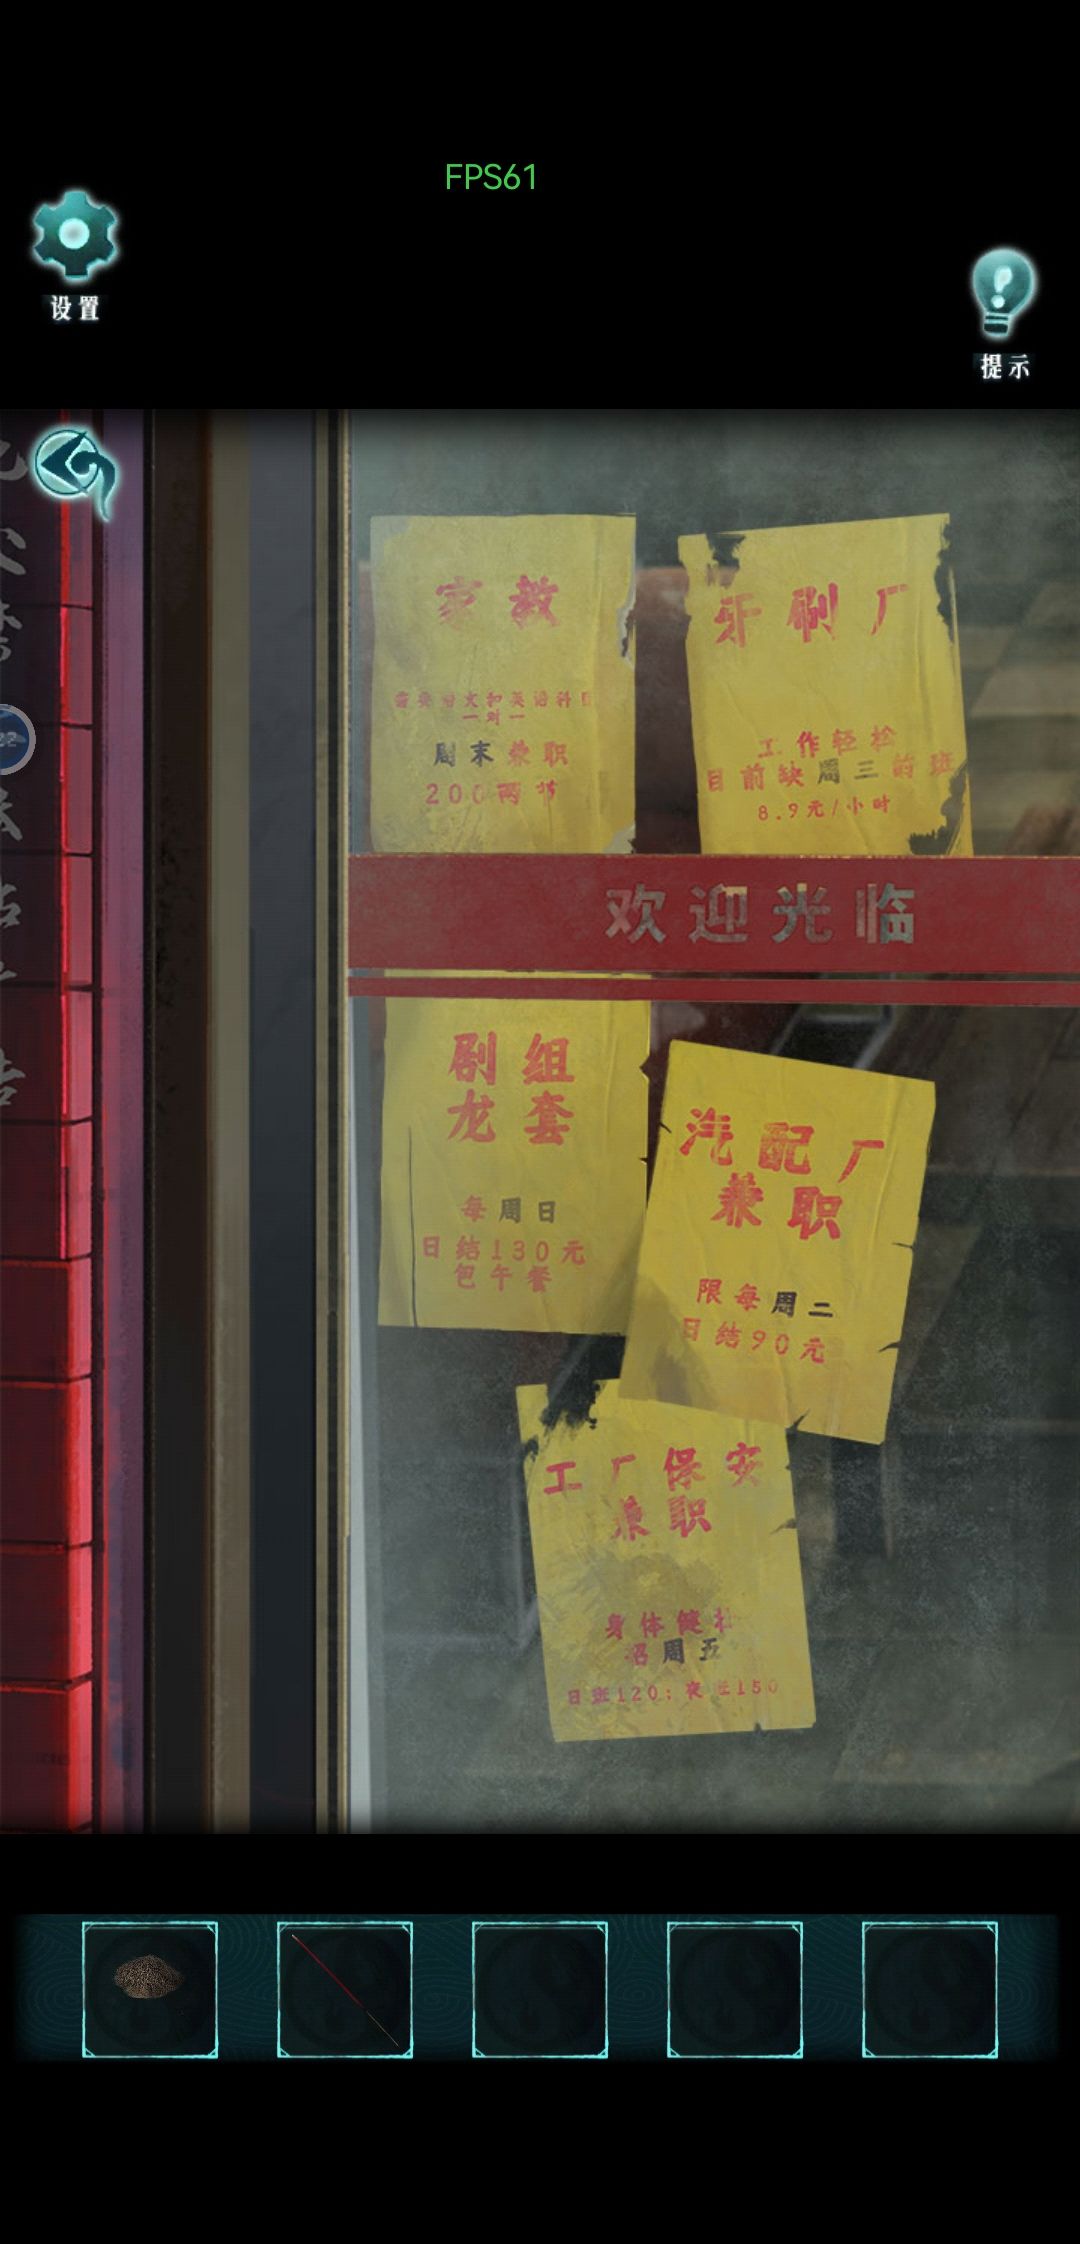 FPS61
设置
提示
家教
需要语文和英语科目
一对一
周末兼职
200两节
牙刷厂
工作轻松
目前缺周三的班
8.9元/小时
欢迎光临
剧组
龙套
每周日
日结130元
包午餐
汽配厂
兼职
限每周二
日结90元
工厂保安
兼职
身体健壮
招周五
日班120;夜班150